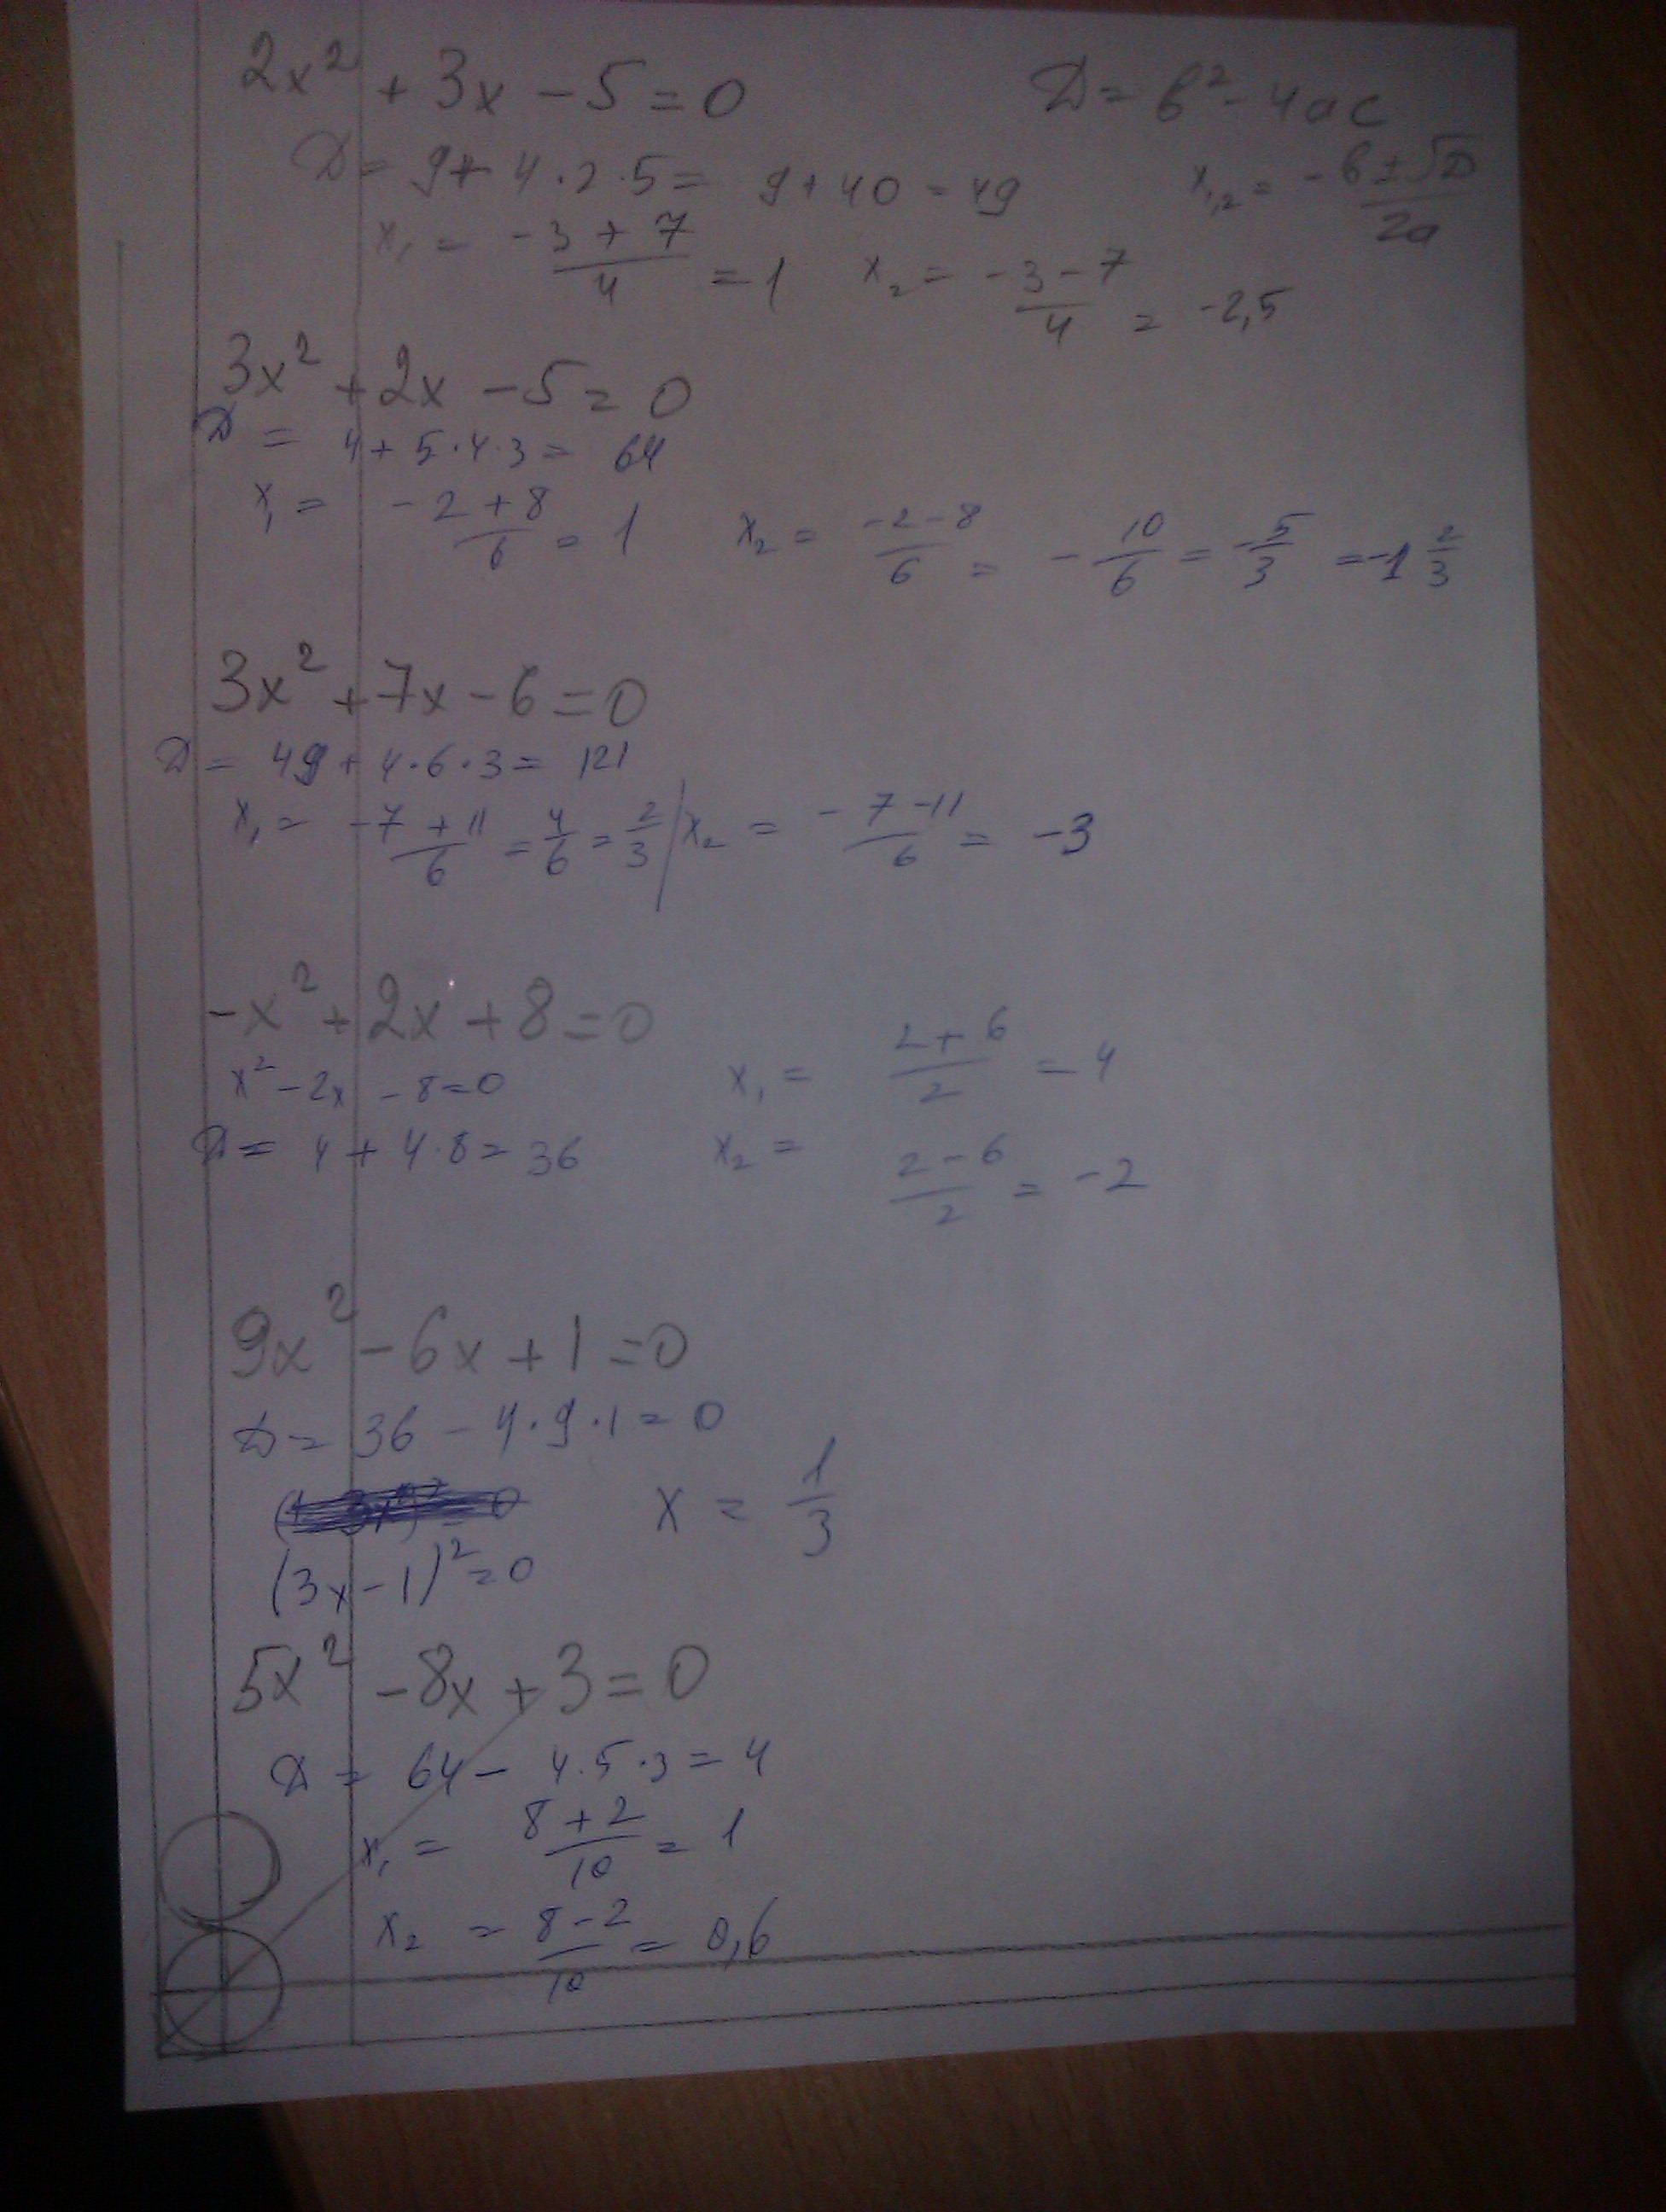 2x² + 3x - 5 = 0
D = b² - 4ac
D = 9 + 4·2·5 = 9 + 40 = 49
x₁,₂ = (-b ± √D)/2a
x₁ = (-3 + 7)/4 = 1 x₂ = (-3 - 7)/4 = -2,5
3x² + 2x - 5 = 0
D = 4 + 5·4·3 = 64
x₁ = (-2 + 8)/6 = 1 x₂ = (-2 - 8)/6 = -10/6 = -5/3 = -1 2/3
3x² + 7x - 6 = 0
D = 49 + 4·6·3 = 121
x₁ = (-7 + 11)/6 = 4/6 = 2/3 / x₂ = (-7 - 11)/6 = -3
-x² + 2x + 8 = 0
x² - 2x - 8 = 0 x₁ = (2 + 6)/2 = 4
D = 4 + 4·8 = 36 x₂ = (2 - 6)/2 = -2
9x² - 6x + 1 = 0
D = 36 - 4·9·1 = 0
x = 1/3
(3x - 1)² = 0
5x² - 8x + 3 = 0
D = 64 - 4·5·3 = 4
x₁ = (8 + 2)/10 = 1
x₂ = (8 - 2)/10 = 0,6